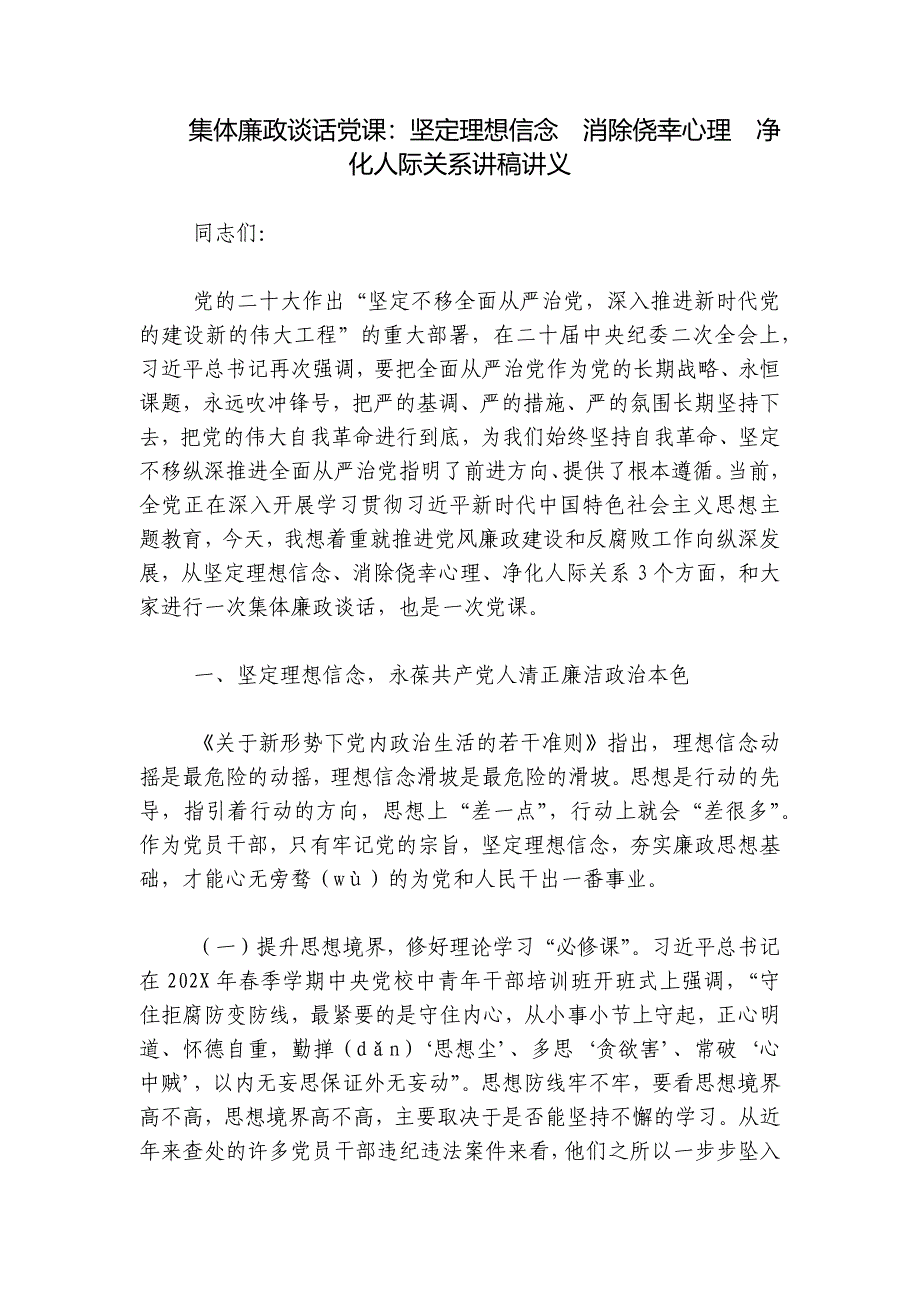 集体廉政谈话党课：坚定理想信念　消除侥幸心理　净
化人际关系讲稿讲义
同志们：
党的二十大作出“坚定不移全面从严治党，深入推进新时代党
的建设新的伟大工程”的重大部署，在二十届中央纪委二次全会上，
习近平总书记再次强调，要把全面从严治党作为党的长期战略、永恒
课题，永远吹冲锋号，把严的基调、严的措施、严的氛围长期坚持下
去，把党的伟大自我革命进行到底，为我们始终坚持自我革命、坚定
不移纵深推进全面从严治党指明了前进方向、提供了根本遵循。当前，
全党正在深入开展学习贯彻习近平新时代中国特色社会主义思想主
题教育，今天，我想着重就推进党风廉政建设和反腐败工作向纵深发
展，从坚定理想信念、消除侥幸心理、净化人际关系 3 个方面，和大
家进行一次集体廉政谈话，也是一次党课。
一、坚定理想信念，永葆共产党人清正廉洁政治本色
《关于新形势下党内政治生活的若干准则》指出，理想信念动
摇是最危险的动摇，理想信念滑坡是最危险的滑坡。思想是行动的先
导，指引着行动的方向，思想上“差一点”，行动上就会“差很多”。
作为党员干部，只有牢记党的宗旨，坚定理想信念，夯实廉政思想基
础，才能心无旁骛（wù）的为党和人民干出一番事业。
（一）提升思想境界，修好理论学习“必修课”。习近平总书记
在 202X 年春季学期中央党校中青年干部培训班开班式上强调，“守
住拒腐防变防线，最紧要的是守住内心，从小事小节上守起，正心明
道、怀德自重，勤掸（dǎn）‘思想尘’、多思‘贪欲害’、常破‘心
中贼’，以内无妄思保证外无妄动”。思想防线牢不牢，要看思想境界
高不高，思想境界高不高，主要取决于是否能坚持不懈的学习。从近
年来查处的许多党员干部违纪违法案件来看，他们之所以一步步坠入